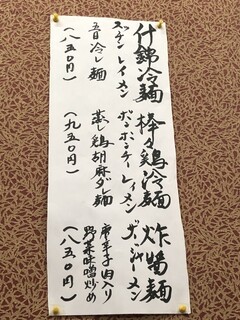 什錦冷麺
スッチンレイメン
五目冷し麺
(八五〇円)
棒々鶏冷麺
ボンボンチーレイメン
蒸し鶏胡麻ダレ麺
(九五〇円)
炸醤麺
ザージャーメン
唐辛子肉入り
野菜味噌炒め
(八五〇円)